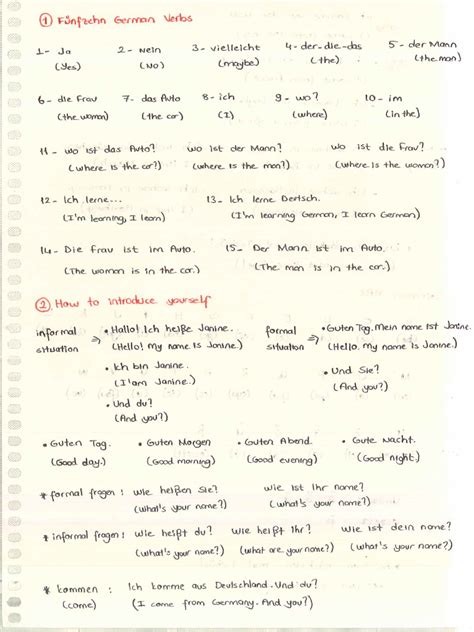 ① Fünfzehn German Verbs
1- Ja 2- Nein 3- vielleicht 4- der-die-das 5- der Mann
(Yes) (No) (maybe) (the) (the man)
6- die Frau 7- das Auto 8- ich 9- wo? 10- im
(the woman) (the car) (I) (where) (in the)
11- wo ist das Auto? wo ist der Mann? wo ist die Frau?
(where is the car?) (where is the man?) (where is the woman?)
12- Ich lerne... 13- Ich lerne Dertsch.
(I'm learning, I learn) (I'm learning German, I learn German)
14- Die Frau ist im Auto. 15- Der Mann ist im Auto.
(The woman is in the car.) (The man is in the car.)
② How to introduce yourself
informal situation ⇒ • Hallo! Ich heiße Janine. formal situation ⇒ • Guten Tag. Mein name ist Janine.
(Hello! my name is Janine.) (Hello. my name is Janine.)
• Ich bin Janine. • Und Sie?
(I am Janine.) (And you?)
• Und du?
(And you?)
• Guten Tag. • Guten Morgen • Guten Abend. • Gute Nacht.
(Good day.) (Good morning) (Good evening) (Good night.)
* formal fragen: wie heißen Sie? wie ist Ihr name?
(what's your name?) (what's your name?)
* informal fragen: wie heißt du? wie heißt Ihr? wie ist dein name?
(what's your name?) (what are your name?) (what's your name?)
* kommen: Ich komme aus Deutschland. Und du?
(come) (I come from Germany. And you?)